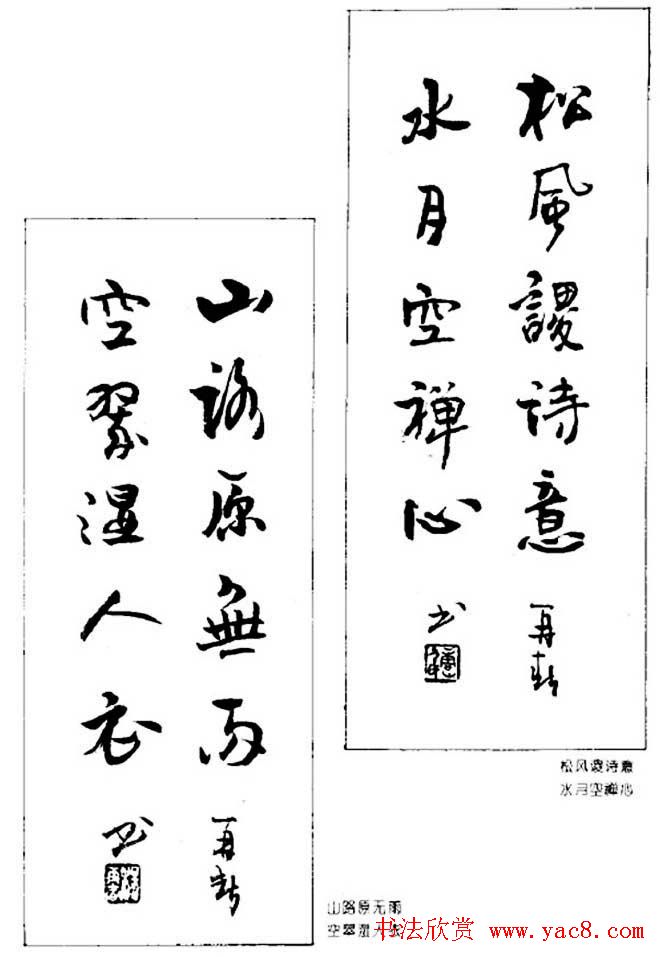 松風謖詩意
水月空禅心
再新
书
松风谡诗意
水月空禅心
山路原無雨
空翠濕人衣
再新
书
山路原无雨
空翠湿人衣
书法欣赏 www.yac8.com